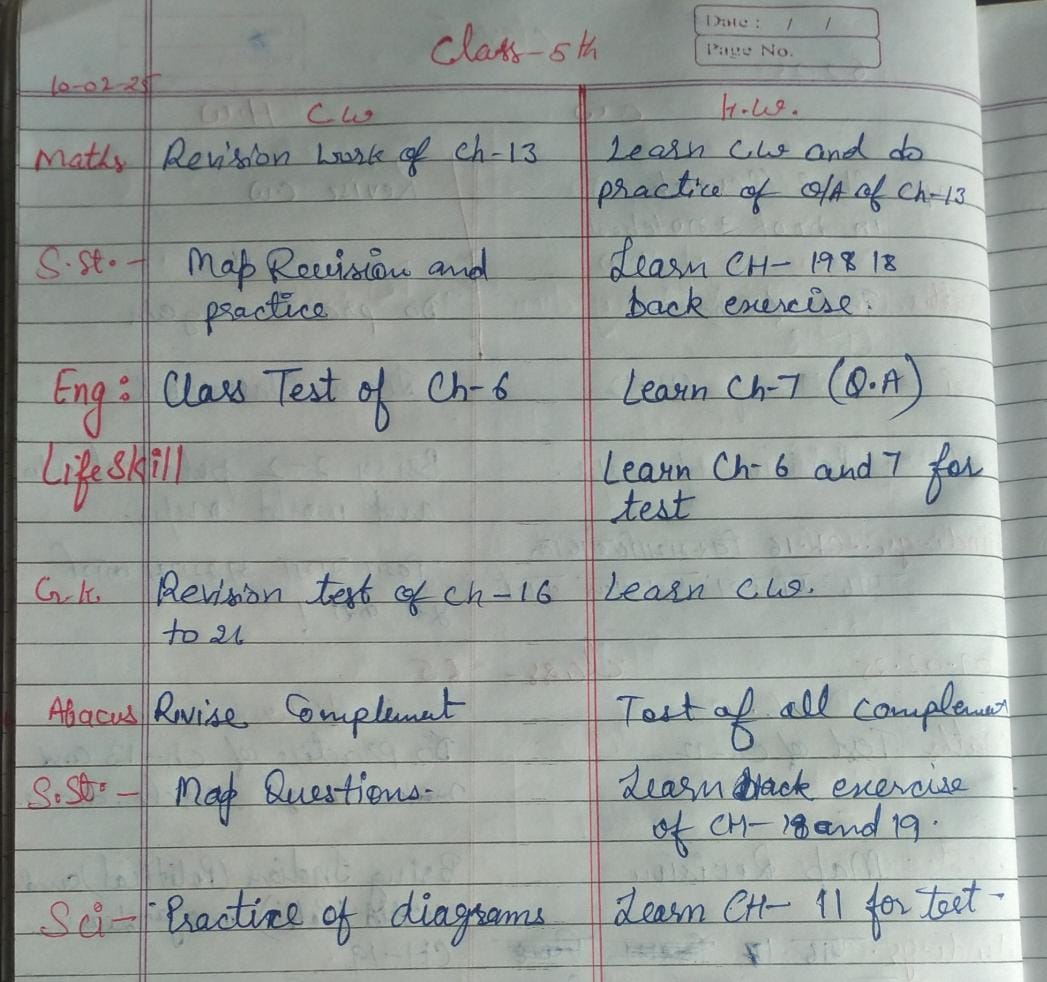 Date : / /
Page No.
Class-5th
10-02-25
C.W
H.W.
Maths Revision work of Ch-13 Learn C.W and do
practice of Q/A of Ch-13
S.St. - Map Revision and Learn CH- 19 & 18
practice back exercise.
Eng: Class Test of Ch-6 Learn Ch-7 (Q.A)
Life Skill Learn Ch-6 and 7 for
test
G.k. Revision test of Ch-16 Learn C.W.
to 21
Abacus Revise Complement Test of all complement
S.St. - Map Questions. Learn back exercise
of CH- 18 and 19.
Sci - Practice of diagrams Learn CH- 11 for test -